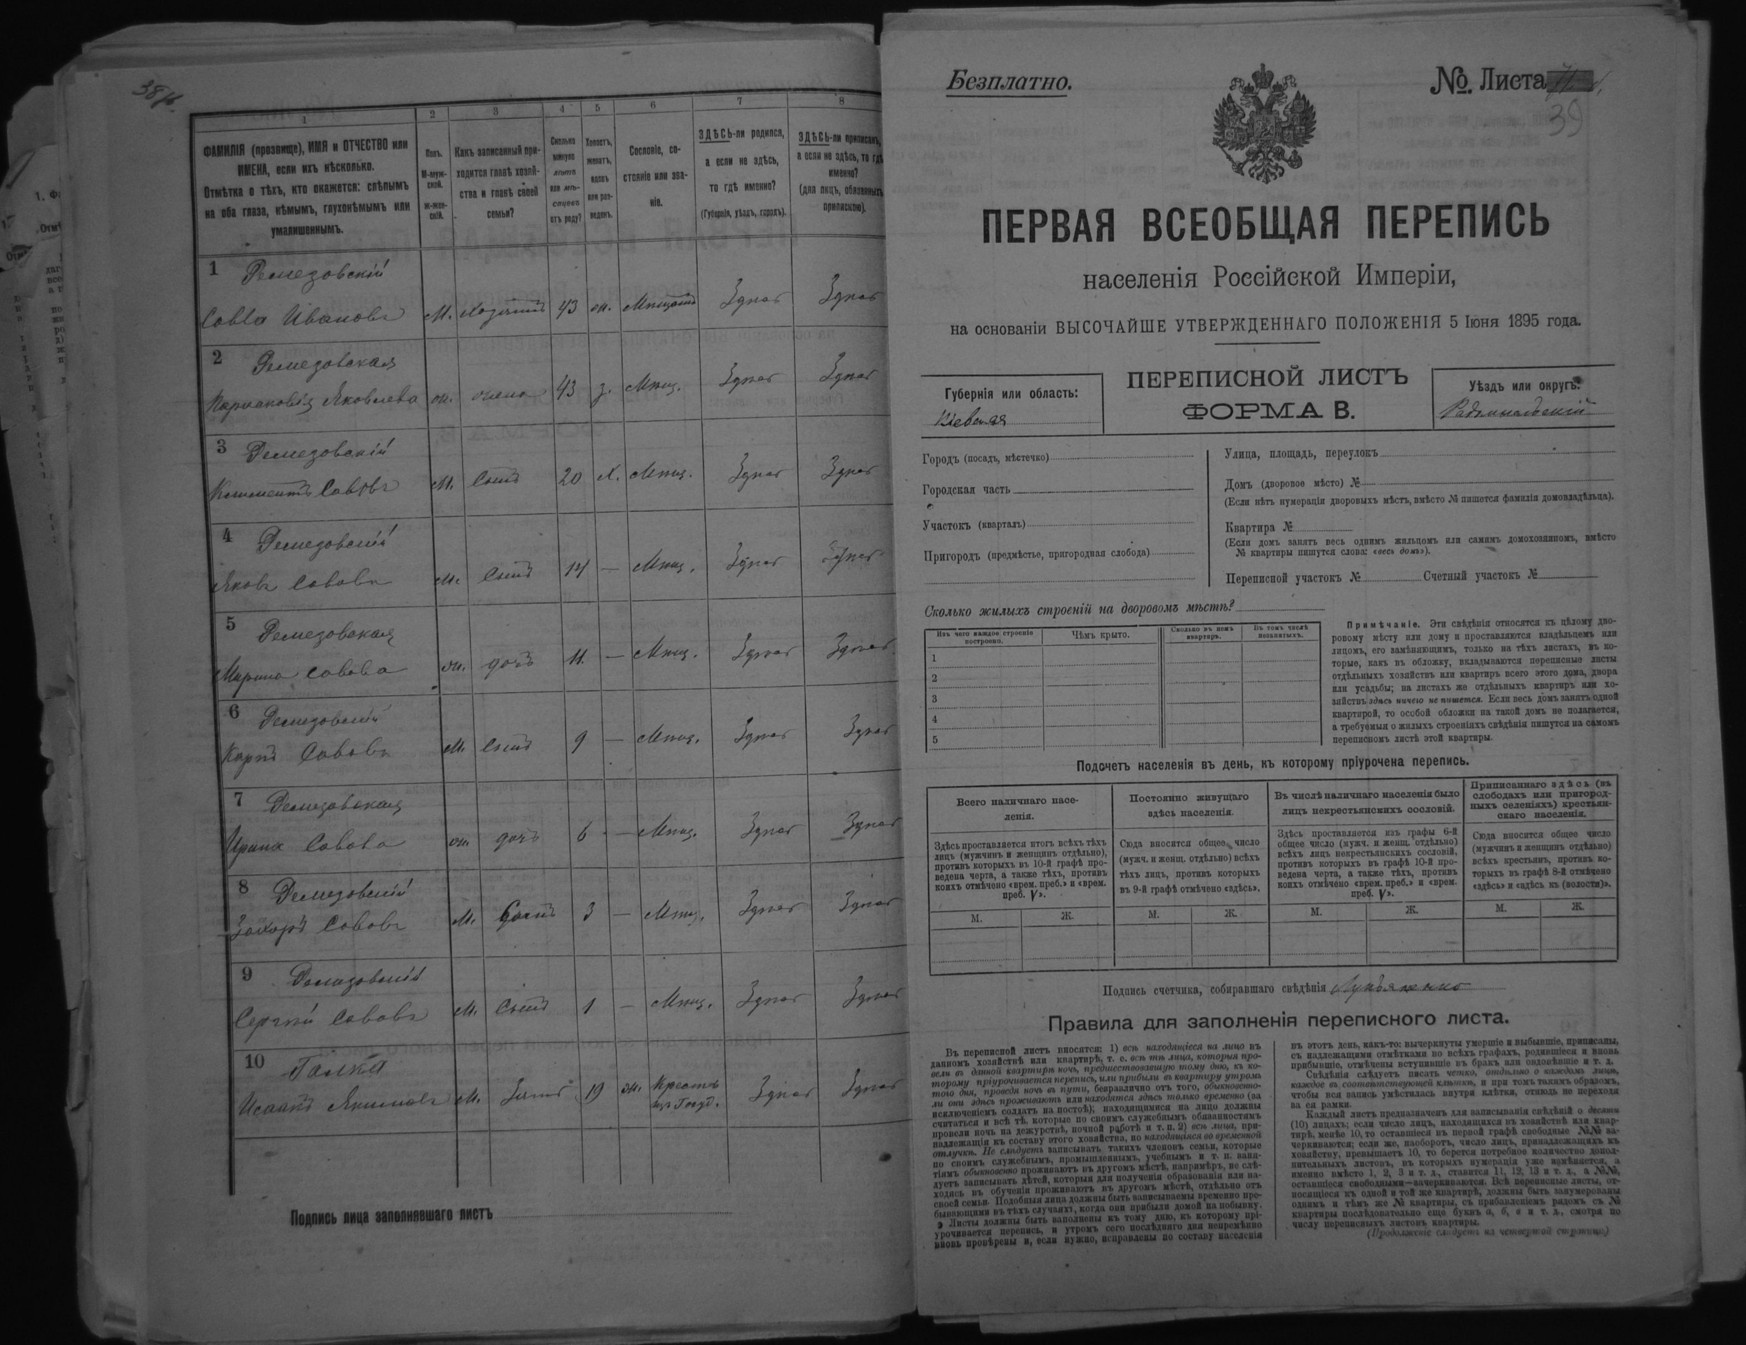 1
2
3
4
5
6
7
8
ФАМИЛІЯ (прозвище), ИМЯ и ОТЧЕСТВО или
ИМЕНА, если ихъ нѣсколько.
Отмѣтка о тѣхъ, кто окажется: слѣпымъ
на оба глаза, нѣмымъ, глухонѣмымъ или
умалишеннымъ.
Полъ.
М-муж-
ской.
ж-жен-
скій.
Какъ записанный при-
ходится главѣ хозяй-
ства и главѣ своей
семьи?
Сколько
минуло
лѣтъ
или мѣ-
сяцевъ
отъ роду?
Холостъ,
женатъ,
вдовъ
или раз-
веденъ.
Сословіе, со-
стояніе или зва-
ніе.
ЗДѢСЬ-ли родился,
а если не здѣсь,
то гдѣ именно?
(Губернія, уѣздъ, городъ).
ЗДѢСЬ-ли приписанъ,
а если не здѣсь, то гдѣ
именно?
(для лицъ, обязанныхъ
припискою).
1 Демезовскій
Савва Ивановъ М. 43 ж.
2 Демезовская
Яковлева ж. жена 43 з. Мѣщ.
3 Демезовскій
Климентъ Савовъ М. Сынъ 20 х. Мѣщ.
4 Демезовскій
Яковъ Савовъ М. Сынъ 14 — Мѣщ.
5 Демезовская
Марина Савова ж. дочь 11 — Мѣщ.
6 Демезовскій
Карпъ Савовъ М. Сынъ 9 — Мѣщ.
7 Демезовская
Ирина Савова ж. дочь 6 — Мѣщ.
8 Демезовскій
Захаръ Савовъ М. Сынъ 3 — Мѣщ.
9 Демезовскій
Сергѣй Савовъ М. Сынъ 1 — Мѣщ.
10 Галка
М. 19 ж.
Подпись лица заполнявшаго листъ
Безплатно.
№ Листа
39
ПЕРВАЯ ВСЕОБЩАЯ ПЕРЕПИСЬ
населенія Россійской Имперіи,
на основаніи ВЫСОЧАЙШЕ УТВЕРЖДЕННАГО ПОЛОЖЕНІЯ 5 Іюня 1895 года.
Губернія или область:
Кіевская
ПЕРЕПИСНОЙ ЛИСТЪ
ФОРМА В.
Уѣздъ или округъ:
Радомысльскій
Городъ (посадъ, мѣстечко)
Городская часть
Участокъ (кварталъ)
Пригородъ (предмѣстье, пригородная слобода)
Улица, площадь, переулокъ
Домъ (дворовое мѣсто) №
(Если нѣтъ нумераціи дворовыхъ мѣстъ, вмѣсто № пишется фамилія домовладѣльца).
Квартира №
(Если домъ занятъ весь однимъ жильцомъ или самимъ домохозяиномъ, вмѣсто
№ квартиры пишутся слова: «весь домъ»).
Переписной участокъ № Счетный участокъ №
Сколько жилыхъ строеній на дворовомъ мѣстѣ?
Изъ чего каждое строеніе
построено.
Чѣмъ крыто.
Сколько въ немъ
квартиръ.
Въ томъ числѣ
незанятыхъ.
1
2
3
4
5
Примѣчаніе. Эти свѣдѣнія относятся къ цѣлому дво-
ровому мѣсту или дому и проставляются владѣльцемъ или
лицомъ, его замѣняющимъ, только на тѣхъ листахъ, въ ко-
торые, какъ въ обложку, вкладываются переписные листы
отдѣльныхъ хозяйствъ или квартиръ всего этого дома, двора
или усадьбы; на листахъ же отдѣльныхъ квартиръ или хо-
зяйствъ здѣсь ничего не пишется. Если весь домъ занятъ одной
квартирой, то особой обложки на такой домъ не полагается,
а требуемыя о жилыхъ строеніяхъ свѣдѣнія пишутся на самомъ
переписномъ листѣ этой квартиры.
Подсчетъ населенія въ день, къ которому пріурочена перепись.
Всего наличнаго насе-
ленія.
Здѣсь проставляется итогъ всѣхъ тѣхъ
лицъ (мужчинъ и женщинъ отдѣльно),
противъ которыхъ въ 10-й графѣ про-
ведена черта, а также тѣхъ, противъ
коихъ отмѣчено «врем. преб.» и «врем.
преб. V».
Постоянно живущаго
здѣсь населенія.
Сюда вносится общее число
(мужч. и женщ. отдѣльно) всѣхъ
тѣхъ лицъ, противъ которыхъ
въ 9-й графѣ отмѣчено «здѣсь».
Въ числѣ наличнаго населенія было
лицъ некрестьянскихъ сословій.
Здѣсь проставляется изъ графы 6-й
общее число (мужч. и женщ. отдѣльно)
всѣхъ лицъ некрестьянскихъ сословій,
противъ которыхъ въ графѣ 10-й про-
ведена черта, а также тѣхъ, противъ
коихъ отмѣчено «врем. преб.» и «врем.
преб. V».
Приписаннаго здѣсь (въ
слободахъ или пригород-
ныхъ селеніяхъ) крестьян-
скаго населенія.
Сюда вносится общее число
(мужчинъ и женщинъ отдѣльно)
всѣхъ крестьянъ, противъ ко-
торыхъ въ графѣ 8-й отмѣчено
«здѣсь» и «здѣсь къ (волости)».
М. Ж. М. Ж. М. Ж. М. Ж.
Подпись счетчика, собиравшаго свѣдѣнія Лукьяненко
Правила для заполненія переписного листа.
Въ переписной листъ вносятся: 1) всѣ находящіеся на лицо въ
данномъ хозяйствѣ или квартирѣ, т. е. всѣ тѣ лица, которыя про-
вели въ данной квартирѣ ночь, предшествовавшую тому дню, къ ко-
торому пріурочивается перепись, или прибыли въ квартиру утромъ
того дня, проведя ночь въ пути, безразлично отъ того, обыкновенно-
ли они здѣсь проживаютъ или находятся здѣсь только временно (за
исключеніемъ солдатъ на постоѣ); находящимися на лицо должны
считаться и всѣ тѣ, которые по своимъ служебнымъ обязанностямъ
провели ночь на дежурствѣ, ночной работѣ и т. п. 2) всѣ лица, при-
надлежащія къ составу этого хозяйства, но находящіяся во временной
отлучкѣ. Не слѣдуетъ записывать такихъ членовъ семьи, которые
по своимъ служебнымъ, промышленнымъ, учебнымъ и т. п. заня-
тіямъ обыкновенно проживаютъ въ другомъ мѣстѣ, напримѣръ, не слѣ-
дуетъ записывать дѣтей, которыя для полученія образованія или на-
ходясь въ обученіи проживаютъ въ другомъ мѣстѣ, отдѣльно отъ
своей семьи. Подобныя лица должны быть записываемы временно пре-
бывающими въ тѣхъ случаяхъ, когда они прибыли домой на побывку.
Листы должны быть заполнены къ тому дню, къ которому прі-
урочивается перепись, и утромъ сего послѣдняго дня непремѣнно
вновь провѣрены и, если нужно, исправлены по составу населенія
въ этотъ день, какъ-то: вычеркнуты умершіе и выбывшіе, приписаны,
съ надлежащими отмѣтками во всѣхъ графахъ, родившіеся и вновь
прибывшіе, отмѣчены вступившіе въ бракъ или овдовѣвшіе и т. д.
Свѣдѣнія слѣдуетъ писать четко, отдѣльно о каждомъ лицѣ,
каждое въ соотвѣтствующей клѣткѣ, и при томъ такимъ образомъ,
чтобы вся запись умѣстилась внутри клѣтки, отнюдь не переходя
за ея рамки.
Каждый листъ предназначенъ для записыванія свѣдѣній о десяти
(10) лицахъ; если число лицъ, находящихся въ хозяйствѣ или квар-
тирѣ, менѣе 10, то оставшіеся въ первой графѣ свободные №№ за-
черкиваются; если же, наоборотъ, число лицъ, принадлежащихъ къ
хозяйству, превышаетъ 10, то берется потребное количество допол-
нительныхъ листовъ, въ которыхъ нумерація уже измѣняется, а
именно вмѣсто 1, 2, 3 и т. д., ставится 11, 12, 13 и т. д., а №№,
оставшіеся свободными—зачеркиваются. Всѣ переписные листы, от-
носящіеся къ одной и той же квартирѣ, должны быть занумерованы
однимъ и тѣмъ же № квартиры, съ прибавленіемъ рядомъ съ №
квартиры послѣдовательно еще буквъ а, б, в и т. д., смотря по
числу переписныхъ листовъ квартиры.
(Продолженіе слѣдуетъ на четвертой страницѣ)